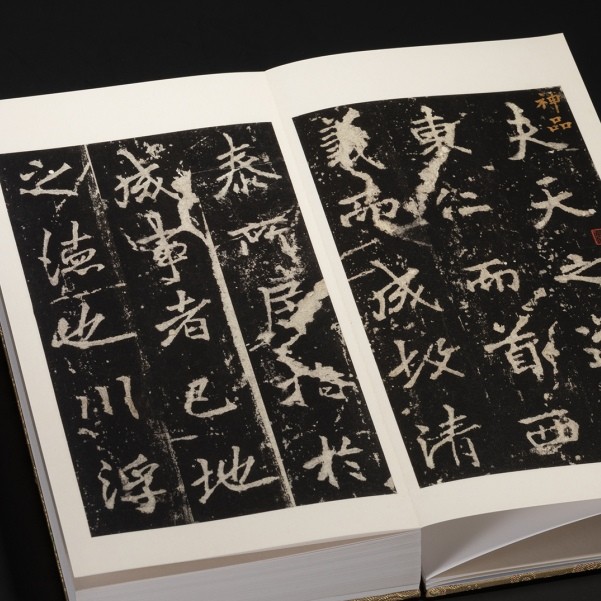 神品
夫天之道
東仁而首西
義而成故清
泰所居指於
成事者已地
之德也川浮